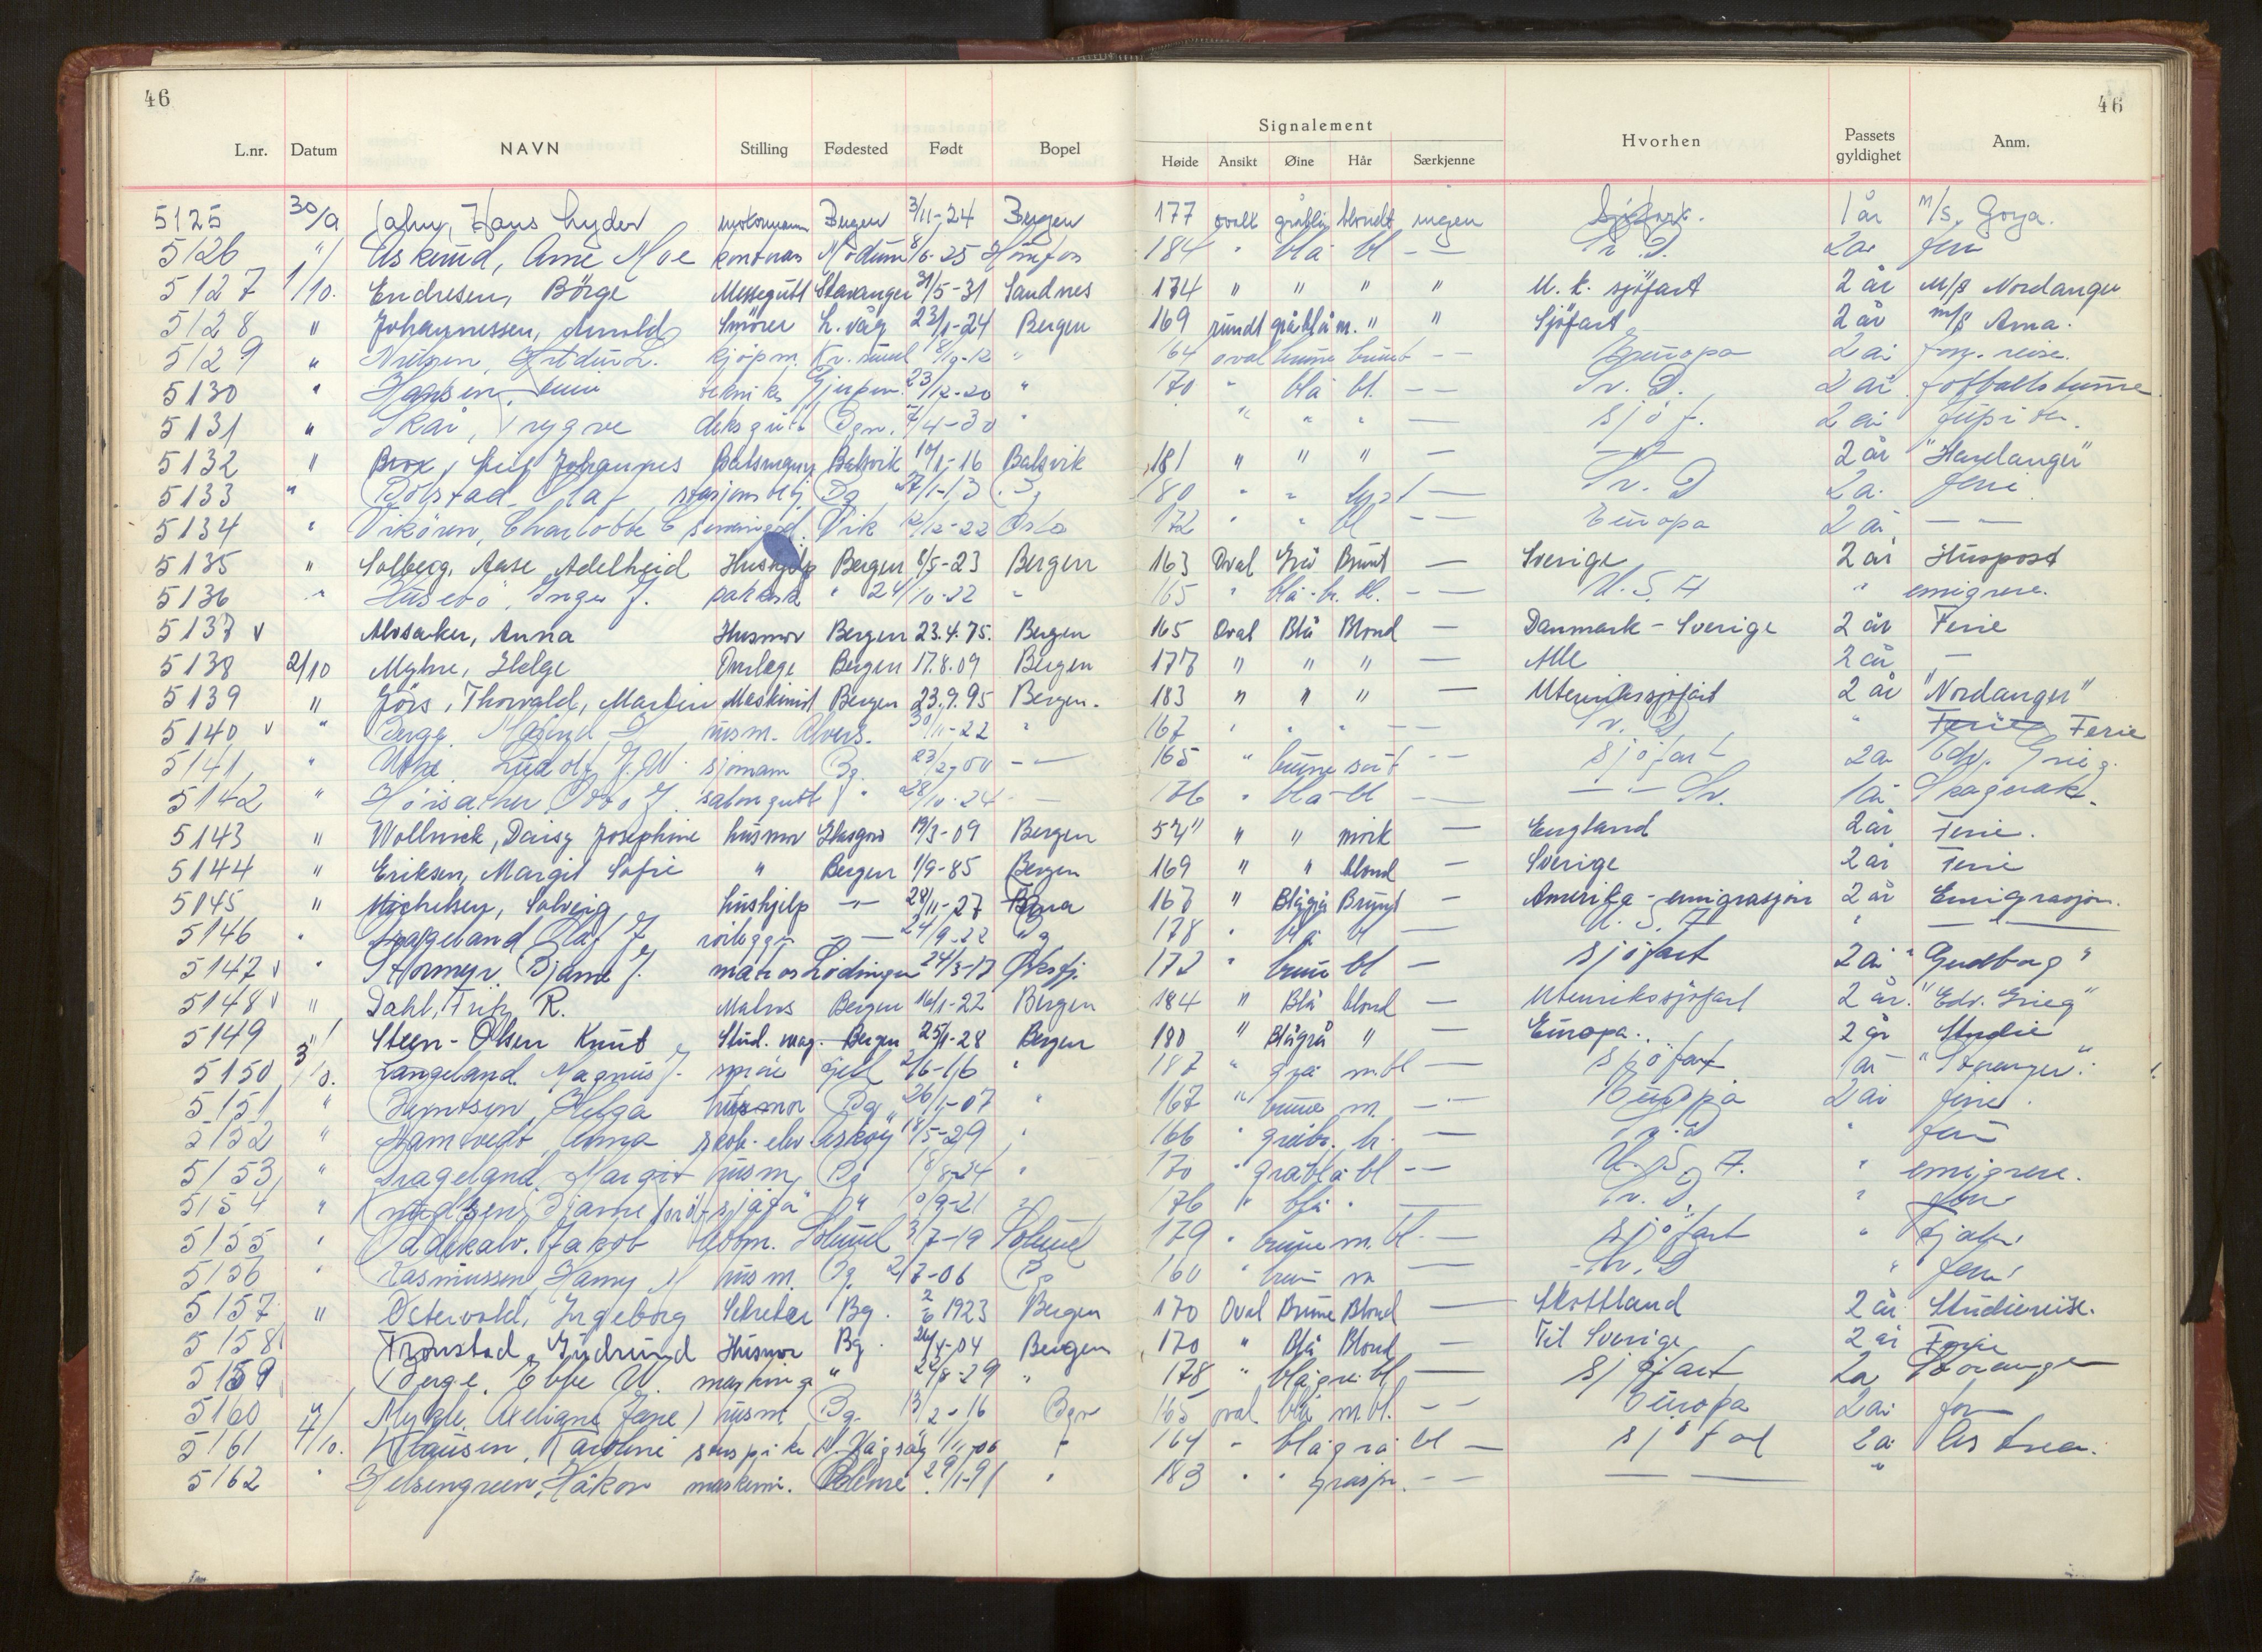 46 46
Signalement
L.nr. Datum NAVN Stilling Fødested Født Bopel Høide Ansikt Øine Hår Særkjenne Hvorhen Passets gyldighet Anm.
5125 30/9 Jahn, Hans Lyder motormann Bergen 3/11-24 Bergen 177 ovalt gråblå blondt ingen Sjöfart. 1 år M/S. Goya.
5126 " Askerud, Arne Moe Modum 8/6-25 Hönefoss 184 " blå bl - - Sv. D. 2 år ferie
5127 1/10. Endresen, Börge Messegutt Stavanger 31/5-31 Sandnes 174 " " " " U.k. sjöfart 2 år M/S Nordanger
5128 " Johannessen, Arnold Smörer L. våg 23/1-24 Bergen 169 rundt gråblå m. " " Sjöfart 2 år m/s Ama.
5129 " Nielsen, kjöpm. Kr. sund 8/9-12 " 164 oval brune brunt - - Europa 2 år forr. reise.
5130 " Hansen, Gjerpen 23/12-20 " 170 " blå bl. - - Sv. D. 2 år fotballturne
5131 " Skår, Trygve deksgutt Bgn. 7/4-30 " " " " — sjöf. 2 år Jupiter.
5132 " Brox, Leif Johannes Båtsmann Balsvik 10/1-16 Balsvik 181 " " " — — " — 2 år "Hardanger"
5133 " Bolstad Olaf stasjonsbetj Bg 27/1-13 Bg 180 " " lyst — Sv. D 2 år ferie
5134 " Vikören, Charlotte E Vik 12/12-22 Oslo 172 " " bl - - Europa 2 år - -
5135 " Solberg, Aase Adelheid Hushjelp Bergen 8/5-23 Bergen 163 Oval Grå Brunt — Sverige 2 år Huspost
5136 " Husebö, Inger J. " 24/10-22 " 165 " blå-br. bl. - - U.S.A " emigrere.
5137 v Alvsaker, Anna Husmor Bergen 23.4.75. Bergen 165 Oval Blå Blond — Danmark - Sverige 2 år Ferie
5138 2/10 Myhre, Helge Overlege Bergen 17.8.09 Bergen 177 " " " — Alle 2 år —
5139 " Jörs, Thorvald, Martin Maskinist Bergen 23.9.95 Bergen. 183 " " " — Utenrikssjöfart 2 år "Nordanger"
5140 v " Berge, husm. Alvers. 30/11-22 " 167 " " " - - Sv. D " Ferie Ferie
5141 " Uthe Ludolf J.W. sjömann Bg. 23/2-00 - - 165 " brune sort - - sjöfart 2 år Edv. Grieg.
5142 " salongutt " 28/10-24 - - 176 " blå bl - - - - Sv. 1 år Skagerak.
5143 " Wollnick, Daisy Josephine husmor Glasgow 19/3-09 Bergen 5'4" " " mörk — England 2 år Ferie.
5144 " Eriksen, Margit Sofie " Bergen 1/9-85 Bergen 169 " " blond — Sverige 2 år Ferie
5145 " Michelsen, Solveig hushjelp — " — 28/11-27 Fana 167 " Blågrå Brunt — Amerika - emigrasjon 2 år Emigrasjon.
5146 " Drageland Olaf J. rörlegger - " - 24/9-22 Bg 178 " blå bl — U.S.A " — " —
5147 v " Stormyr Bjarne J. matros Lödingen 24/3-17 172 " brune bl — sjöfart 2 år "Gudborg"
5148 v " Dahl, Fritz R. Matros Bergen 16/1-22 Bergen 184 " Blå blond — Utenrikssjöfart 2 år. "Edv. Grieg"
5149 " Steen-Olsen Knut Stud. mag. Bergen 25/1-28 Bergen 180 " Blågrå " — Europa. 2 år Studie
5150 3/10. Langeland Magnus J. Fjell 2/6-16 " 187 " grå m.bl — sjöfart 1 år "Soranger".
5151 " Berntsen, Helga husmor Bg 26/1-07 " 167 " brune m. — Europa 2 år ferie.
5152 " Hamtvedt, Anna skoleelev Asköy 18/5-29 " 166 " gråbr. br. — Sv. D " ferie
5153 " Drageland Margit husm. Bg 18/8-24 " 170 " gråblå bl - - U.S.A. " emigrere.
5154 " Knudtsen Bjarne sjåför " 10/9-21 " 176 " blå " — Sv. D. " ferie
5155 " Jakob Solund 3/7-19 Solund 179 " brune m.bl. — sjöfart "
5156 " Rasmussen Hanny M husm. Bg. 2/7-06 Bg 160 " brun m — Sv. D " ferie
5157 " Ostervold, Ingeborg Sekretær Bg. 2/6 1923 Bergen 170 Oval Brune Blond — Skottland 2 år. Studiereise.
5158 Tronstad, Gudrund Husmor Bg. 24/4-04 Bergen 170 " Blå Blond — Til Sverige 2 år Ferie
5159 Berge, Ebbe W. " 22/8-29 " 178 " blågrå bl — sjöfart 2 år Soranger
5160 " Mykle Axeliane (Jane) husm. Bg. 13/2-16 Bgn 165 oval blå m.bl. - - Europa 2 år
5161 4/10. Klausen, Karoline N. Vågsöy 1/11-06 " 164 " blågrå bl — sjöfart 2 år Astrea.
5162 " Helsengreen, Håkon maskinm. 29/1-91 " 183 " " gråspr. - - — — "